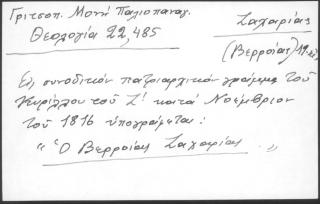 Γριτσοπ. Μονή Παλιοπαναγ.
Θεολογία 22,485
Ζαχαρίας
(Βερροίας)
Εἰς συνοδικόν πατριαρχικόν γράμμα τοῦ
Κυρίλλου τοῦ Ζ' κατά Νοέμβριον
τοῦ 1816 ὑπογράφεται:
"Ὁ Βερροίας Ζαχαρίας."